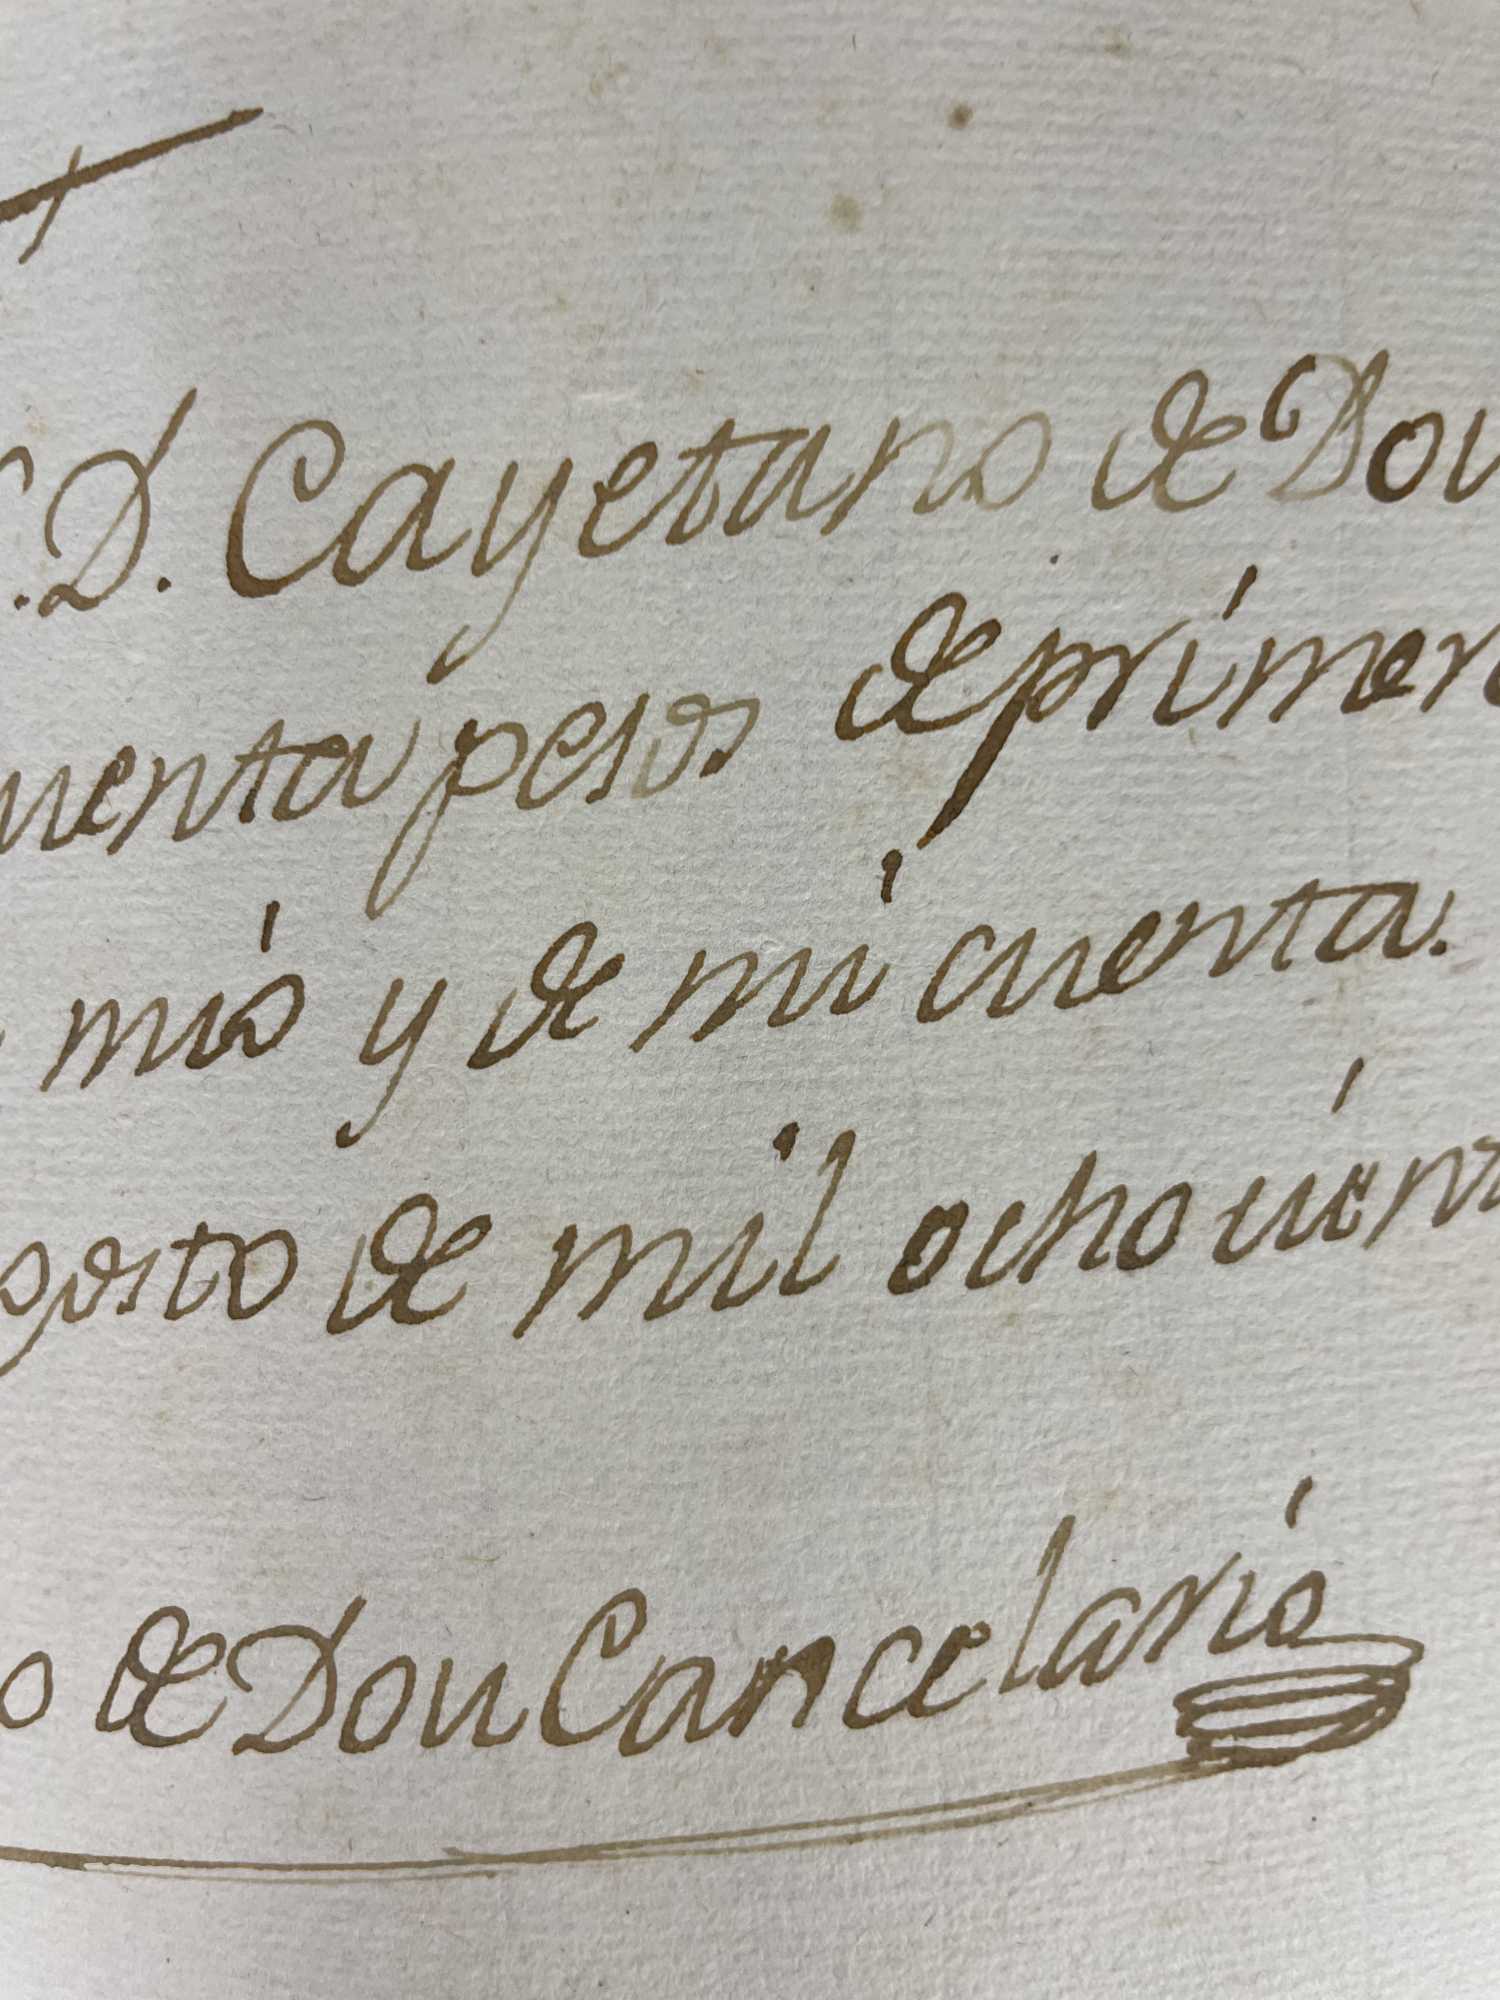 . D. Cayetano de Dou
uenta pesos de primer
mio y de mi cuenta.
gosto de mil ochocient
o de Dou Cancelario